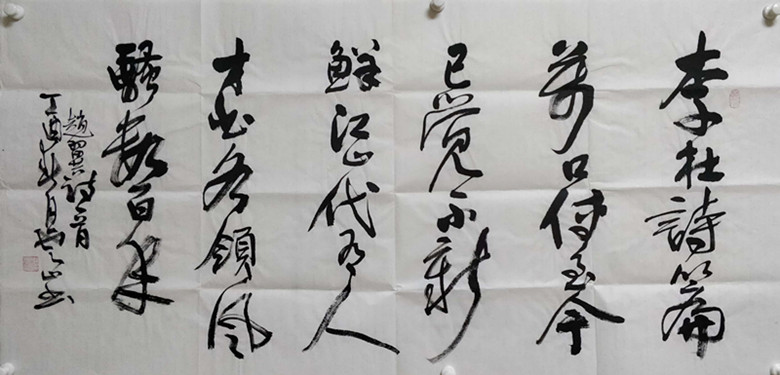 李杜詩篇
萬口傳至今
已覺不新
鮮江山代有人
才出各領風
騷數百年
趙翼詩一首
丁酉秋月山書